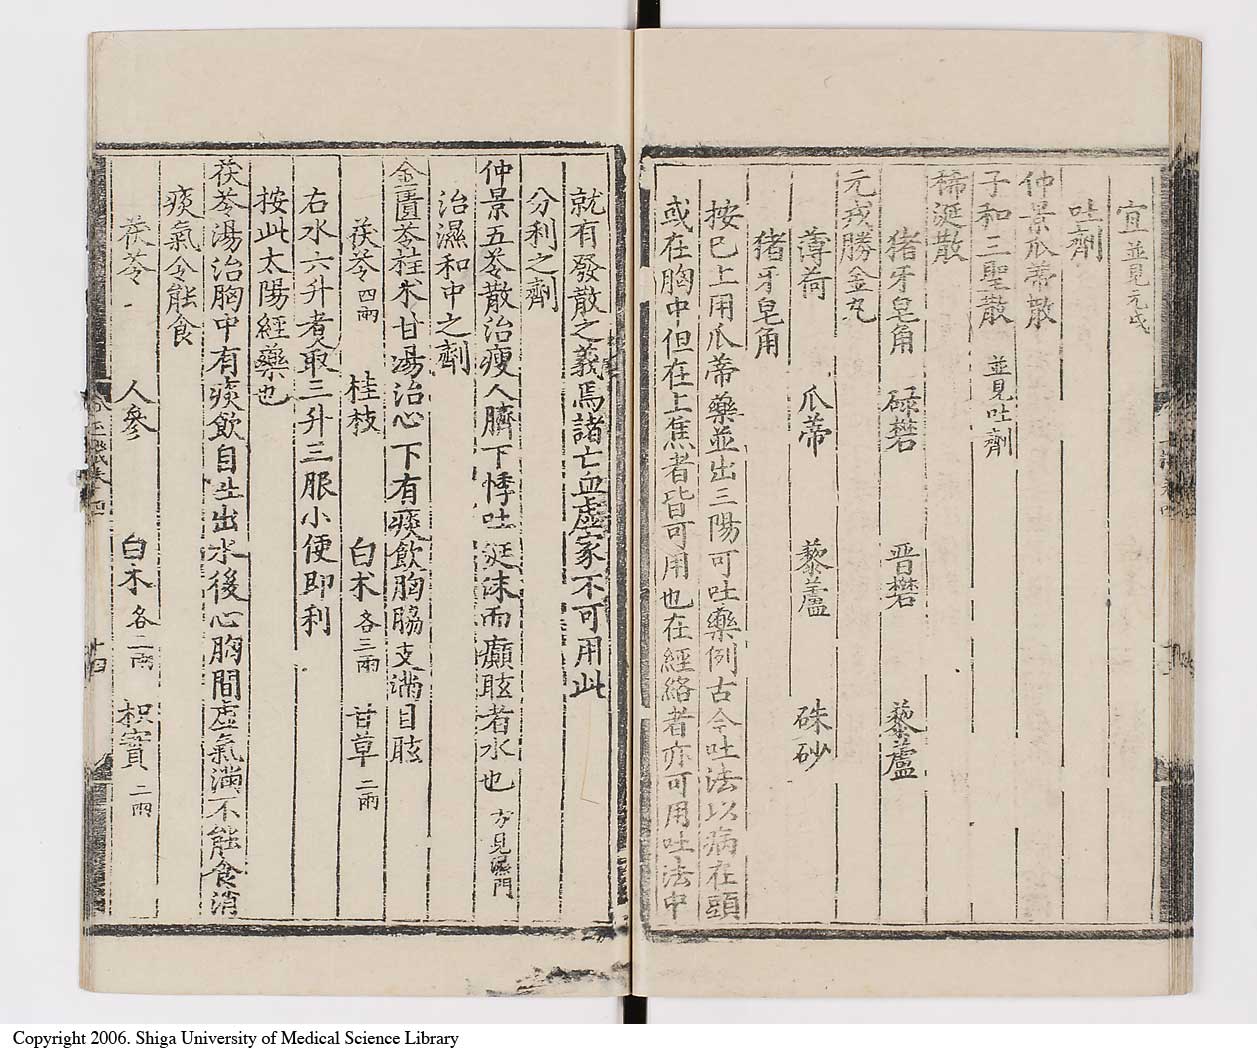 宜並見元戎
吐劑
仲景瓜蒂散
子和三聖散 並見吐劑
稀涎散
猪牙皂角 碌礬 晋礬 藜蘆
元戎勝金丸
薄荷 瓜蒂 藜蘆 硃砂
猪牙皂角
按巳上用瓜蒂藥並出三陽可吐藥例古今吐法以病在頭
或在胸中但在上焦者皆可用也在經絡者亦可用吐法中
就有發散之義焉諸亡血虛家不可用此
分利之劑
仲景五苓散治瘦人臍下悸吐涎沫而癲眩者水也 方見濕門
治濕和中之劑
金匱苓桂朮甘湯治心下有痰飲胸脇支滿目眩
茯苓四兩 桂枝 白朮各三兩 甘草二兩
右水六升煮取三升三服小便即利
按此太陽經藥也
茯苓湯治胸中有痰飲自生出水後心胸間虛氣滿不能食消
痰氣令能食
茯苓 人參 白朮各二兩 枳實二兩
十四
Copyright 2006. Shiga University of Medical Science Library